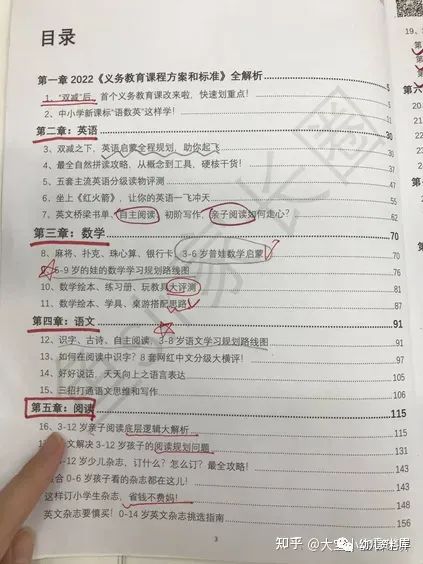 目录
第一章 2022《义务教育课程方案和标准》全解析 5
1、“双减”后，首个义务教育课改来啦，快速划重点！ 5
2、中小学新课标“语数英”这样学！
第二章：英语 30
3、双减之下，英语启蒙全程规划，助你起飞 30
4、最全自然拼读攻略，从概念到工具，硬核干货！ 40
5、五套主流英语分级读物评测
6、坐上《红火箭》，让你的英语一飞冲天 55
7、英文桥梁书单、自主阅读、初阶写作，亲子阅读如何走心？ 62
第三章：数学 70
8、麻将、扑克、珠心算、银行卡，3-6岁普娃数学启蒙 70
6-9岁的娃的数学学习规划路线图 76
10、数学绘本、练习册、玩教具大评测 81
11、数学绘本、学具、桌游搭配思路 87
第四章：语文 91
12、识字、古诗、自主阅读，3-8岁语文学习规划路线图 91
13、如何在阅读中识字？8套网红中文分级大横评！ 97
14、好好说话，天天向上之语言表达 105
15、三招打通语文思维和写作 106
第五章：阅读 115
16、3-12岁亲子阅读底层逻辑大解析 115
文解决3-12岁孩子的阅读规划问题 131
-12岁少儿杂志，订什么？怎么订？最全攻略！ 143
合0-6岁孩子看的杂志都在这儿！ 143
这样订小学生杂志，省钱不费妈！ 148
英文杂志要慎买！0-14岁英文杂志挑选指南 156
3
19、
知乎 @大